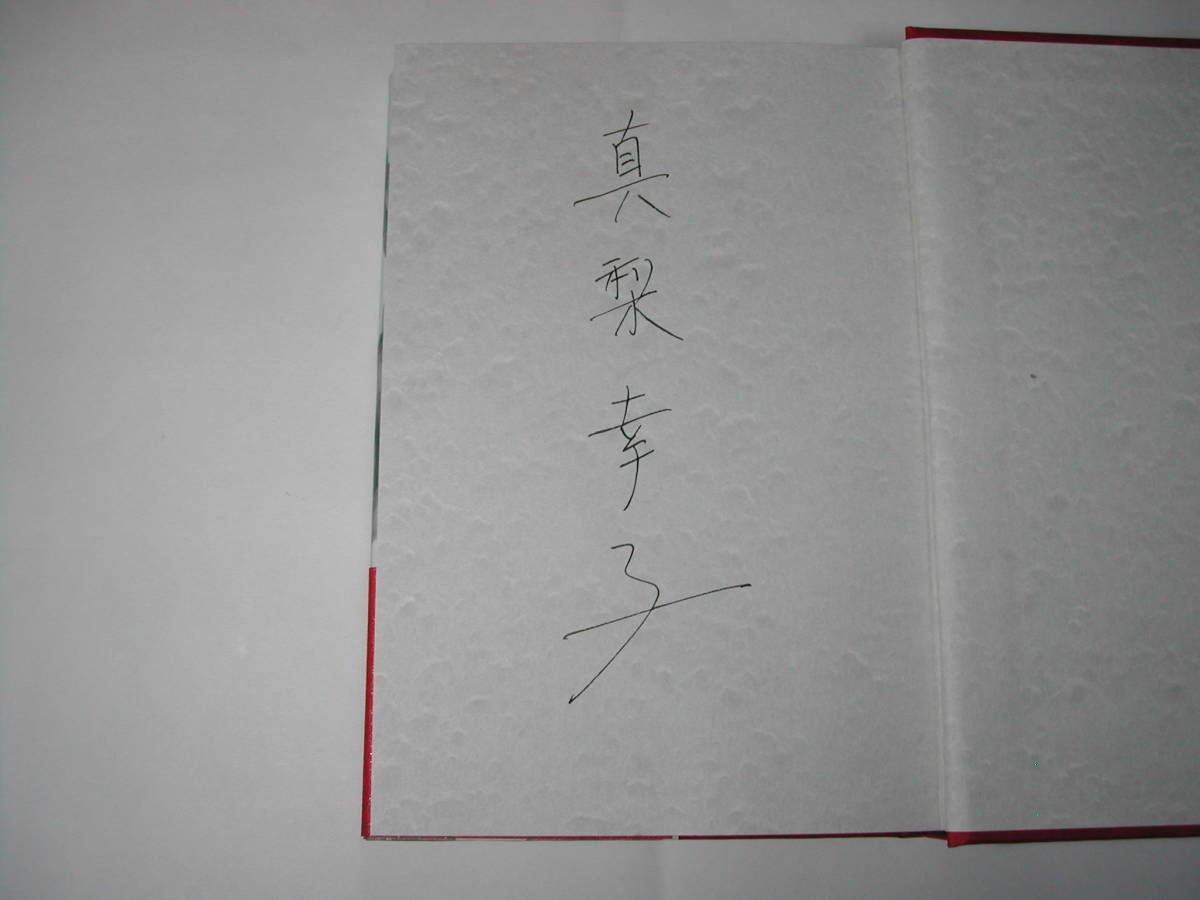 真梨幸子